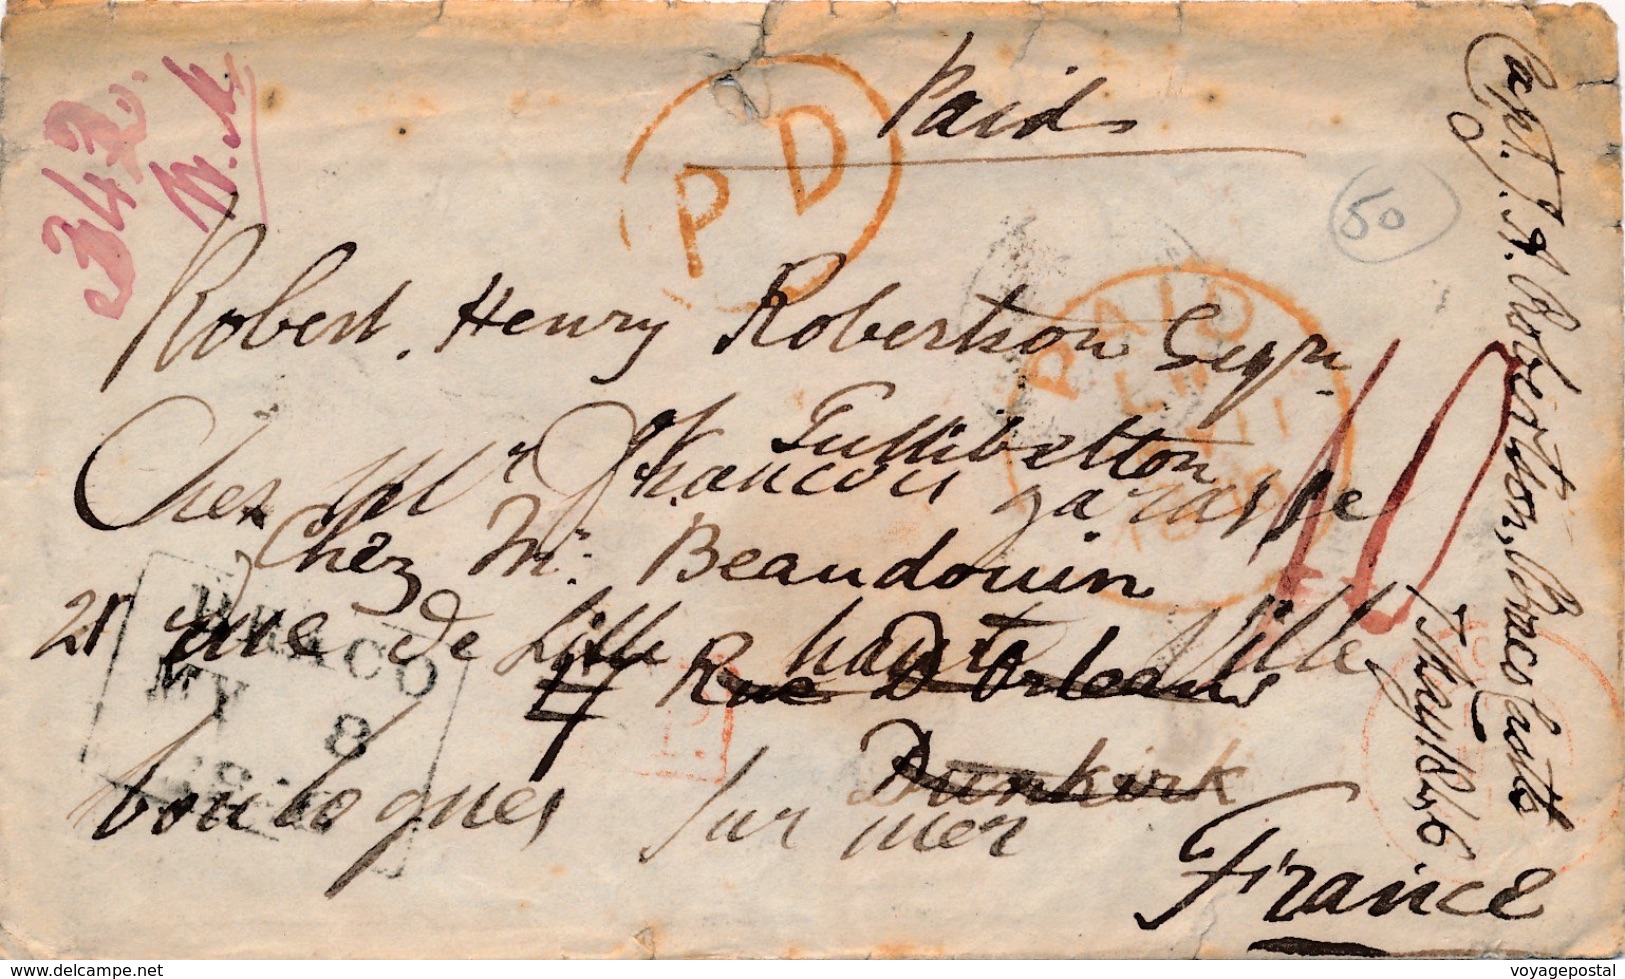 Paid
P D
342.
50
PAID
10
Robert Henry Robertson Esqr.
of Tullibelton
Chez Mr François
Chez Mr. Beaudouin
21 rue de Lille haute Ville
4 Rue D'Orleans
Dunkirk
boulognes sur mer
France
MY 8
Capt. J. A. Robertson, Broco Castle
7 May 1856.
www.delcampe.net
voyagepostal